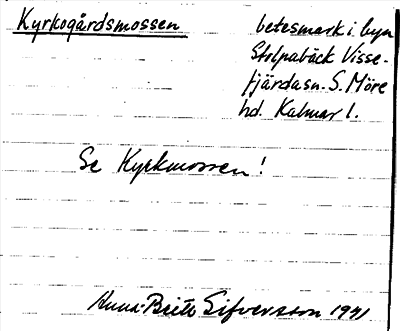 Kyrkogårdsmossen
betesmark i byn
Stolpabäck Visse-
fjärda sn. S. Möre
hd. Kalmar l.
Se Kyrkmossen!
Anna-Beite Sifversson 1941